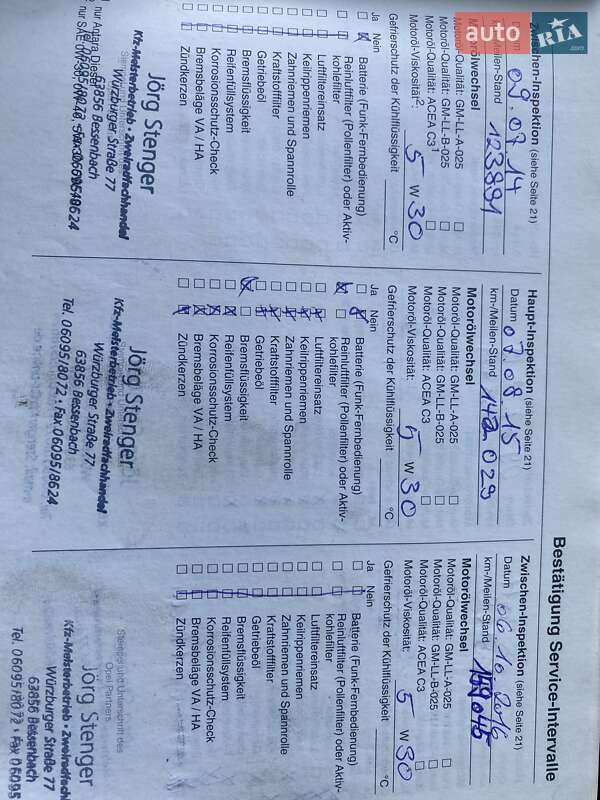 Bestätigung Service-Intervalle
Zwischen-Inspektion (siehe Seite 21)
Datum 09.07.14
km-/Meilen-Stand 123891
Motorölwechsel
Motoröl-Qualität: GM-LL-A-025
Motoröl-Qualität: GM-LL-B-025
Motoröl-Qualität: ACEA C3¹
Motoröl-Viskosität²: 5 W 30
Gefrierschutz der Kühlflüssigkeit °C
Ja Nein
Batterie (Funk-Fernbedienung)
Reinluftfilter (Pollenfilter) oder Aktiv-
kohlefilter
Luftfiltereinsatz
Keilrippenriemen
Zahnriemen und Spannrolle
Kraftstofffilter
Getriebeöl
Bremsflüssigkeit
Reifenfüllsystem
Korrosionsschutz-Check
Bremsbeläge VA / HA
Zündkerzen
Jörg Stenger
Kfz-Meisterbetrieb • Zweiradfachhandel
Würzburger Straße 77
63856 Bessenbach
nur Antara Diesel
Haupt-Inspektion (siehe Seite 21)
Datum 07.08.15
km-/Meilen-Stand 142029
Motorölwechsel
Motoröl-Qualität: GM-LL-A-025
Motoröl-Qualität: GM-LL-B-025
Motoröl-Qualität: ACEA C3
Motoröl-Viskosität: 5 W 30
Gefrierschutz der Kühlflüssigkeit °C
Ja Nein
Batterie (Funk-Fernbedienung)
Reinluftfilter (Pollenfilter) oder Aktiv-
kohlefilter
Luftfiltereinsatz
Keilrippenriemen
Zahnriemen und Spannrolle
Kraftstofffilter
Getriebeöl
Bremsflüssigkeit
Reifenfüllsystem
Korrosionsschutz-Check
Bremsbeläge VA / HA
Zündkerzen
Jörg Stenger
Kfz-Meisterbetrieb • Zweiradfachhandel
Würzburger Straße 77
63856 Bessenbach
Tel. 06095/8072 • Fax 06095/8624
Zwischen-Inspektion (siehe Seite 21)
Datum 06.10.2016
km-/Meilen-Stand
Motorölwechsel
Motoröl-Qualität: GM-LL-A-025
Motoröl-Qualität: GM-LL-B-025
Motoröl-Qualität: ACEA C3
Motoröl-Viskosität: 5 W 30
Gefrierschutz der Kühlflüssigkeit °C
Ja Nein
Batterie (Funk-Fernbedienung)
Reinluftfilter (Pollenfilter) oder Aktiv-
kohlefilter
Luftfiltereinsatz
Keilrippenriemen
Zahnriemen und Spannrolle
Kraftstofffilter
Getriebeöl
Bremsflüssigkeit
Reifenfüllsystem
Korrosionsschutz-Check
Bremsbeläge VA / HA
Zündkerzen
Stempel und Unterschrift des
Opel Partners
Jörg Stenger
Kfz-Meisterbetrieb • Zweiradfach
Würzburger Straße 77
63856 Bessenbach
Tel. 06095/8072 • Fax 06095
auto RIA.com